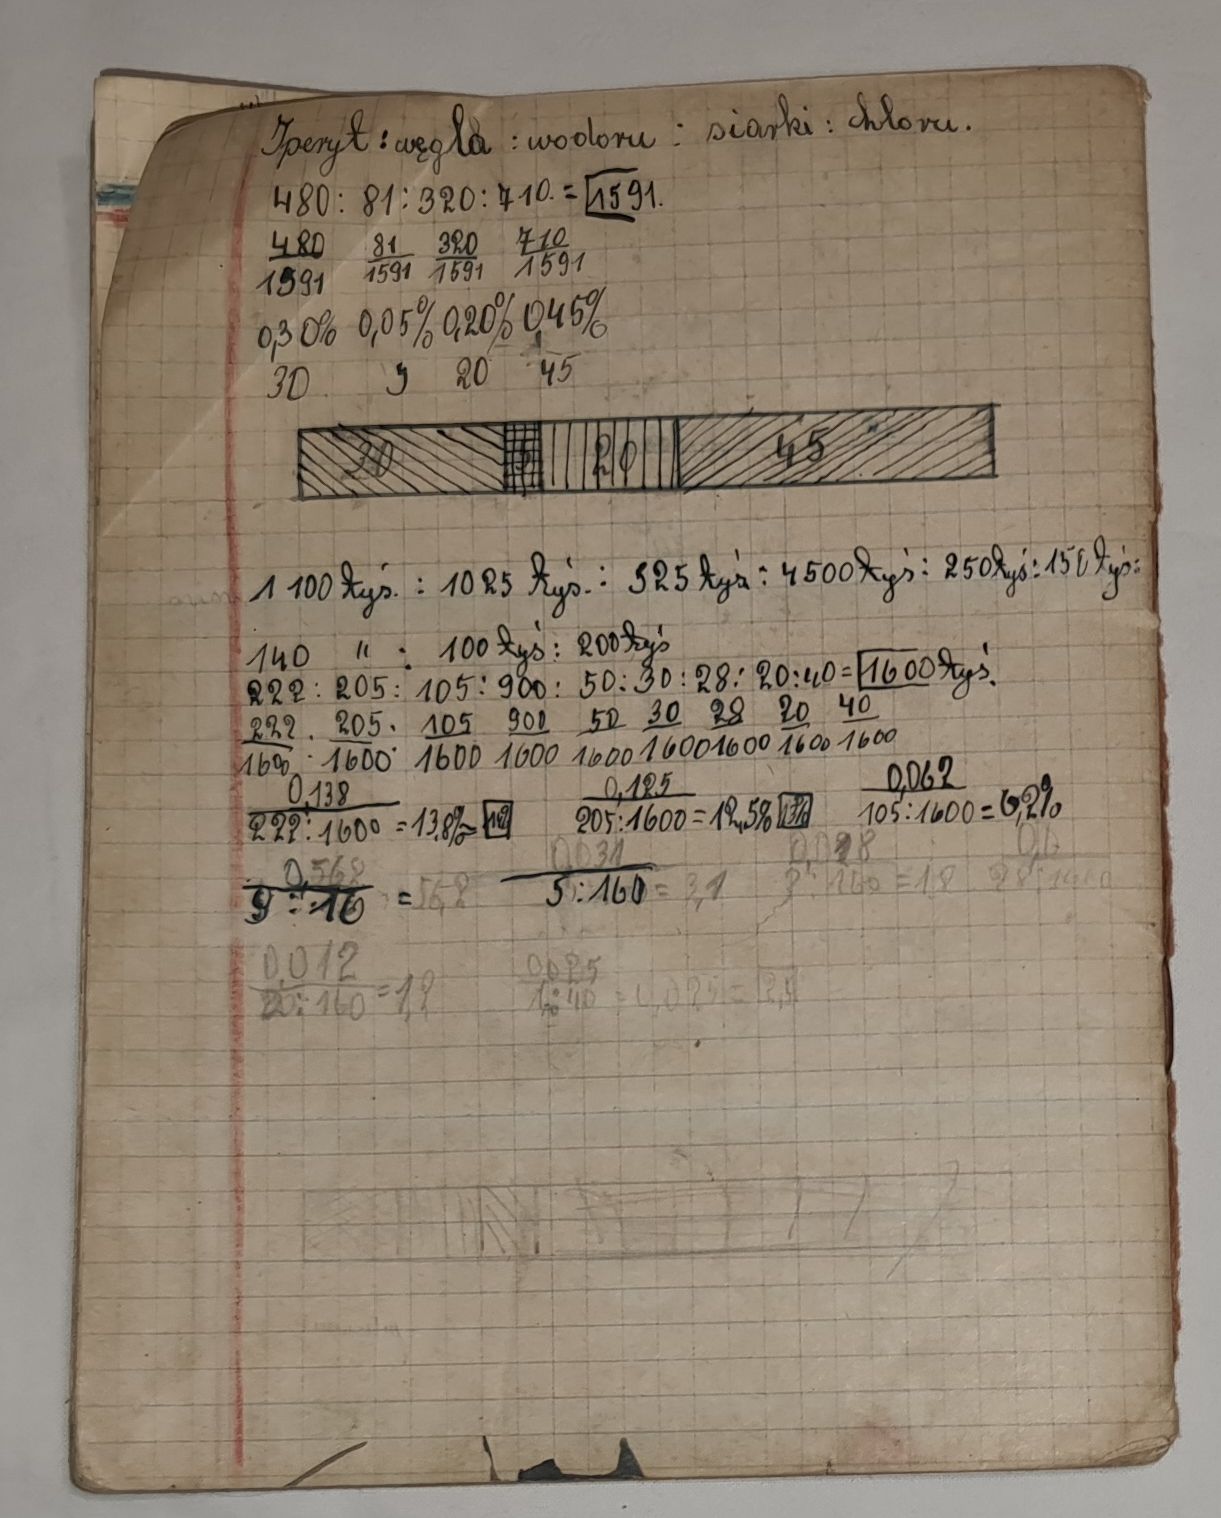 Iperyt : węgla : wodoru : siarki : chloru.
480 : 81 : 320 : 710. = 1591.
480 81 320 710
1591 1591 1591 1591
0,30% 0,05% 0,20% 0,45%
30 5 20 45
20 45
1 100 tyś. : 1025 tyś. : 525 tyś : 4500 tyś : 250 tyś : 150 tyś :
140 " : 100 tyś : 200 tyś
222 : 205 : 105 : 900 : 50 : 30 : 28 : 20 : 40 = 1600 tyś.
222 . 205 . 105 900 50 30 28 20 40
1600 . 1600 . 1600 1600 1600 1600 1600 1600 1600
0,138 0,125 0,062
222 : 1600 = 13,8% = 205 : 1600 = 12,5% 13% 105 : 1600 = 6,2%
0,562 0,031 0,018 0,0
9 : 16 = 56,2 5 : 160 = 3,1 3 : 160 = 1,8
0,012 0,025
20 : 160 = 1,2 1 : 40 = 0,025 = 2,5